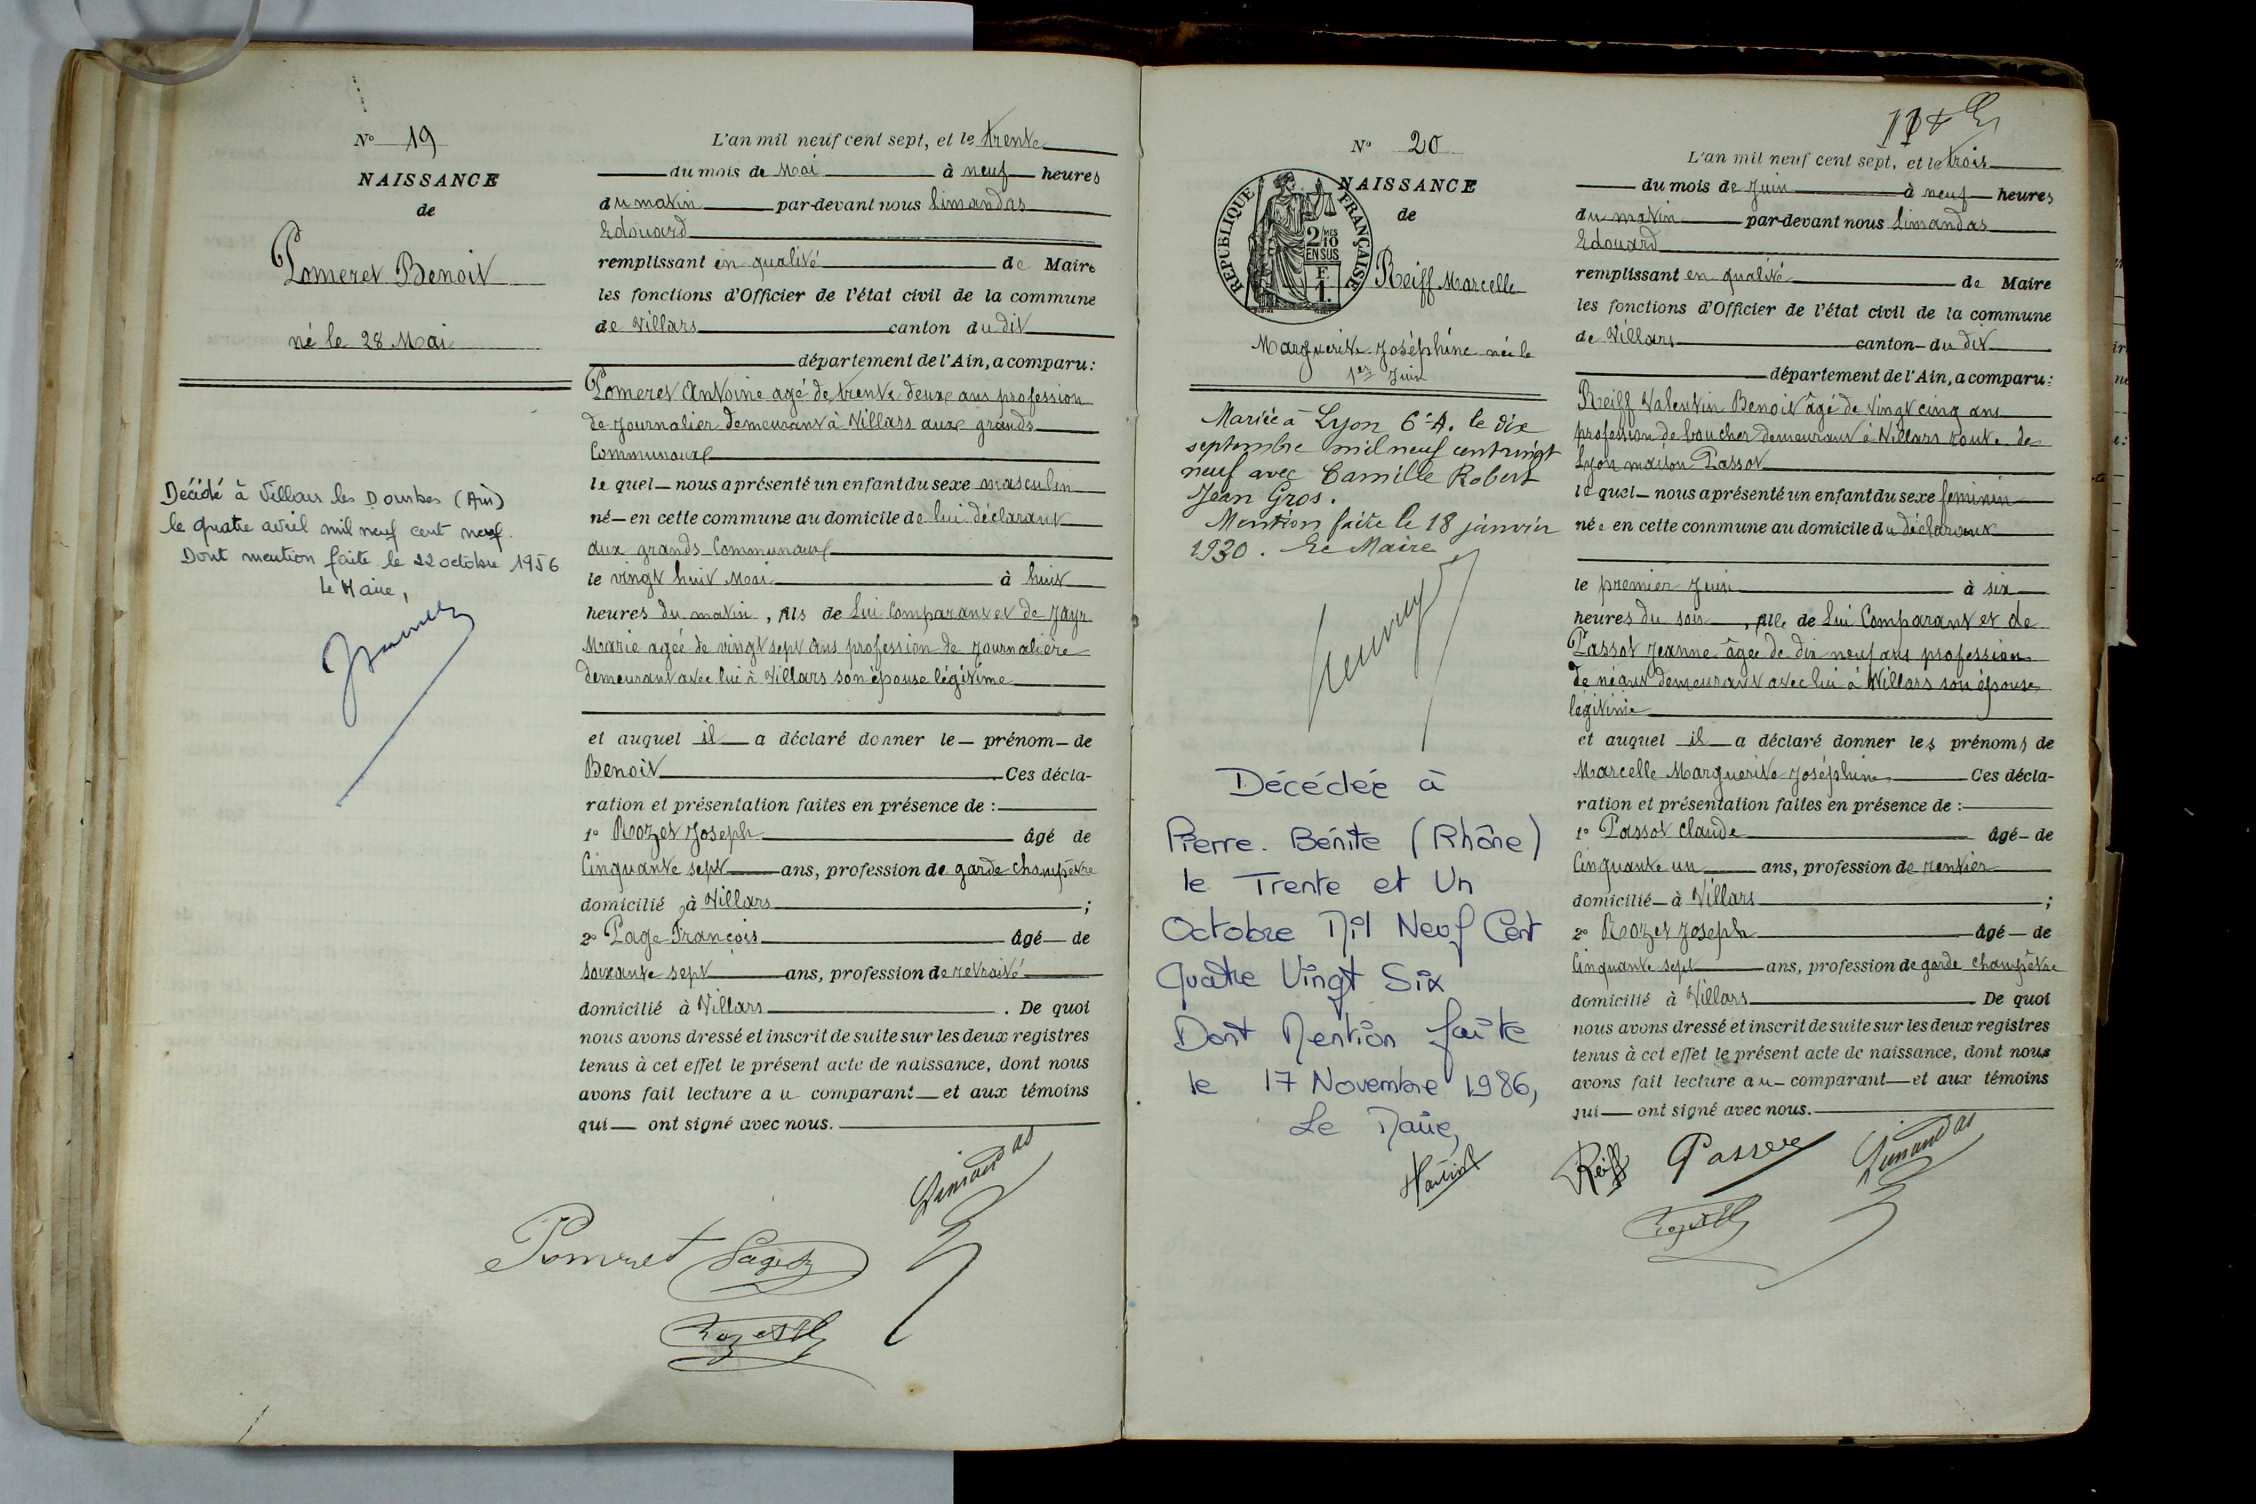 Nº 19
NAISSANCE
de
Pomeret Benoit
né le 28 Mai
Décédé à Villars les Dombes (Ain)
le quatre avril mil neuf cent neuf.
Dont mention faite le 22 octobre 1956
Le Maire,
L'an mil neuf cent sept, et le trente
du mois de Mai à neuf heures
du matin par-devant nous Limandas
Edouard
remplissant en qualité de Maire
les fonctions d'Officier de l'état civil de la commune
de Villars canton du dit
département de l'Ain, a comparu:
Pomeret Antoine agé de trente deux ans profession
de Journalier demeurant à Villars aux grands
Communaux
le quel nous a présenté un enfant du sexe masculin
né en cette commune au domicile de lui déclarant
aux grands Communaux
le vingt huit Mai à huit
heures du matin, fils de Lui Comparant et de Jayr
Marie agée de vingt sept ans profession de Journalière
demeurant avec lui à Villars son épouse légitime
et auquel il a déclaré donner le prénom de
Benoit Ces décla-
ration et présentation faites en présence de :
1º Rozet Joseph âgé de
Cinquante sept ans, profession de garde champêtre
domicilié à Villars ;
2º Page François âgé de
soixante sept ans, profession de retraité
domicilié à Villars . De quoi
nous avons dressé et inscrit de suite sur les deux registres
tenus à cet effet le présent acte de naissance, dont nous
avons fait lecture au comparant et aux témoins
qui ont signé avec nous.
Limandas
Pomeret
Nº 20
NAISSANCE
de
REPUBLIQUE FRANÇAISE
2/10 MES
EN SUS
F.
1.
Reiff Marcelle
Marguerite Joséphine née le
1er Juin
Mariée à Lyon 6e A. le dix
septembre mil neuf cent vingt
neuf avec Camille Robert
Jean Gros.
Mention faite le 18 janvier
1930. Le Maire
Décédée à
Pierre. Bénite (Rhône)
le Trente et Un
Octobre Mil Neuf Cent
Quatre Vingt Six
Dont Mention faite
le 17 Novembre 1986,
Le Maire,
L'an mil neuf cent sept, et le trois
du mois de Juin à neuf heures
du matin par-devant nous Limandas
Edouard
remplissant en qualité de Maire
les fonctions d'Officier de l'état civil de la commune
de Villars canton du dit
département de l'Ain, a comparu:
Reiff Valentin Benoit âgé de vingt cinq ans
profession de boucher demeurant à Villars route de
Lyon maison Passot
le quel nous a présenté un enfant du sexe feminin
née en cette commune au domicile du déclarant
le premier Juin à six
heures du soir, fille de Lui Comparant et de
Passot Jeanne âgée de dix neuf ans profession
de néant demeurant avec lui à Villars son épouse
légitime
et auquel il a déclaré donner les prénoms de
Marcelle Marguerite Joséphine Ces décla-
ration et présentation faites en présence de :
1º Passot Claude âgé de
Cinquante un ans, profession de rentier
domicilié à Villars ;
2º Rozet Joseph âgé de
Cinquante sept ans, profession de garde champêtre
domicilié à Villars De quoi
nous avons dressé et inscrit de suite sur les deux registres
tenus à cet effet le présent acte de naissance, dont nous
avons fait lecture au comparant et aux témoins
qui ont signé avec nous.
Reiff Limandas